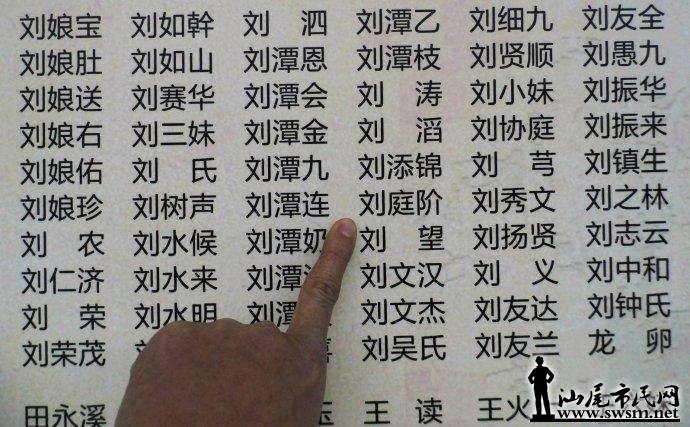 刘娘宝 刘如幹 刘 泗 刘潭乙 刘细九 刘友全
刘娘肚 刘如山 刘潭恩 刘潭枝 刘贤顺 刘愚九
刘娘送 刘赛华 刘潭会 刘 涛 刘小妹 刘振华
刘娘右 刘三妹 刘潭金 刘 滔 刘协庭 刘振来
刘娘佑 刘 氏 刘潭九 刘添锦 刘 芎 刘镇生
刘娘珍 刘树声 刘潭连 刘庭阶 刘秀文 刘之林
刘 农 刘水候 刘潭奶 刘 望 刘扬贤 刘志云
刘仁济 刘水来 刘潭 刘文汉 刘 义 刘中和
刘 荣 刘水明 刘潭 刘文杰 刘友达 刘钟氏
刘荣茂 刘吴氏 刘友兰 龙 卵
田永溪 王 读 王火
汕尾市民网
www.swsm.net